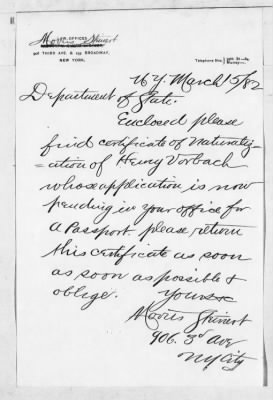 LAW OFFICES
Morris Steinert
906 THIRD AVE. & 132 BROADWAY,
NEW YORK.
Telephone Nos.
N.Y. March 15/92
Department of State.
Enclosed please
find certificate of Naturaliz=
=ation of Henry Vorbach
whose application is now
pending in your office for
a Passport. please return
this certificate as soon
as soon as possible &
oblige. Yours &c
Morris Steinert
906. 3d Ave
N.Y. City